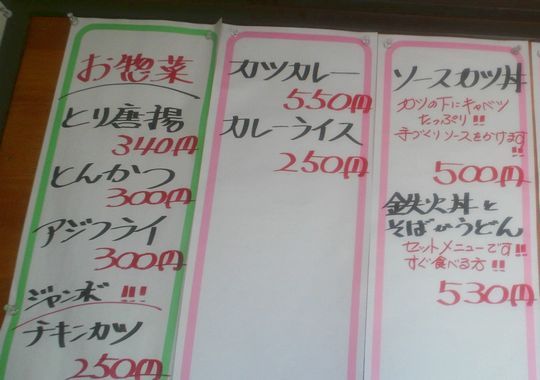 お惣菜
とり唐揚
340円
とんかつ
300円
アジフライ
300円
ジャンボ!!!
チキンカツ
250円
カツカレー
550円
カレーライス
250円
ソースカツ丼
カツの下にキャベツ
たっぷり!!
手づくりソースをかけます!!
500円
鉄火丼と
そばかうどん
セットメニューです!!
すぐ食べる方!!
530円